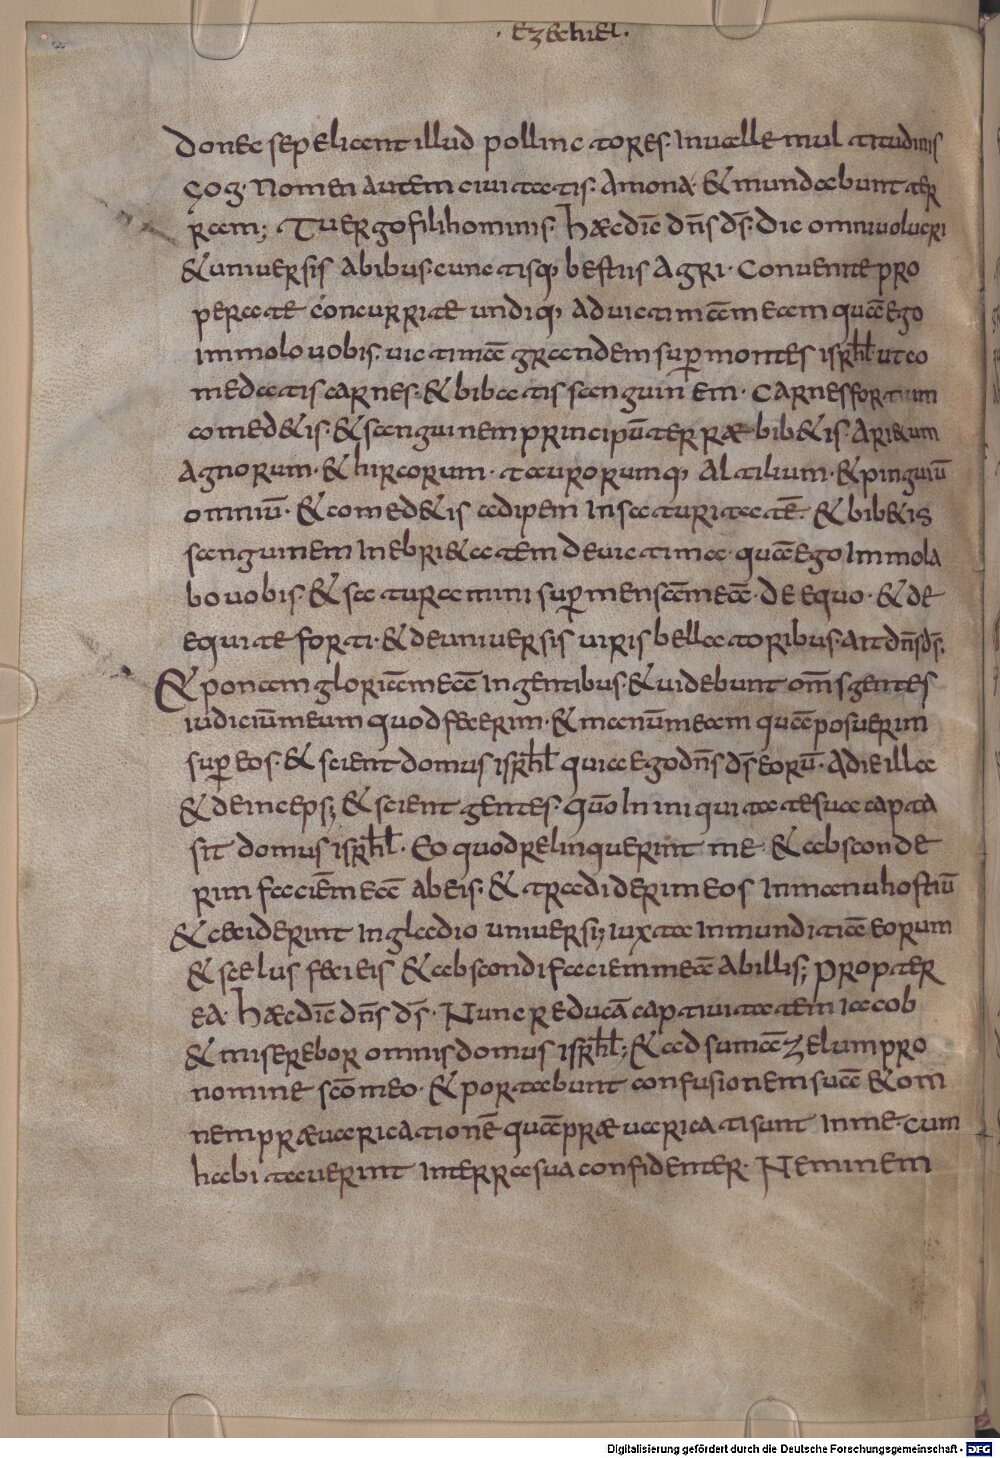 · EZEChIEL ·
Donec sepeliant illud pollinctores · In ualle multitudinis
Gog · Nomen autem ciuitatis · Amona · & mundabunt ter
ram ; Tu ergo fili hominis · Haec dic̄ dn̄s ds̄ · Dic omni uolucri
& uniuersis abibus · cunctisq; bestiis agri · Conuenite pro
perate concurrite undiq; ad uictimā meam quā ego
immolo uobis · uictimā grandem sup̄ montes isrh̄l · ut co
medatis carnes · & bibatis sanguinem · Carnes fortium
comed&is · & sanguinem principū terrae bib&is · Ari&um
Agnorum · & hircorum · taurorumq; altilium · & pinguiū
omniū · & comed&is adipem in saturitatē · & bib&is
sanguinem in ebri&atem de uictima · quā ego immola
bo uobis · & saturamini sup̄ mensā meā · de equo · & de
equite forti · & de uniuersis uiris bellatoribus · ait dn̄s ds̄ ·
& ponam gloriā meā in gentibus · & uidebunt om̄s gentes
iudiciū meum quod fecerim · & manū meam quā posuerim
sup̄ eos · & scient domus isrh̄l quia ego dn̄s ds̄ eorū · A die illa
& deinceps ; & scient gentes · quō in iniquitate sua capta
sit domus isrh̄l · Eo quod relinquerint me & absconde
rim faciē meā ab eis · & tradiderim eos in manu hostiū
& ceciderint in gladio uniuersi ; iuxta inmunditiā eorum
& scelus feci eis & abscondi faciem meā ab illis ; Propter
ea · Haec dic̄ dn̄s ds̄ · Nunc reducā captiuitatem iacob
& miserebor omnis domus isrh̄l ; & adsumā zelum pro
nomine scō meo · & portabunt confusionem suā & om
nem praeuaricationē quā praeuaricati sunt in me · Cum
habitauerint in terra sua confidenter · Neminem
Digitalisierung gefördert durch die Deutsche Forschungsgemeinschaft - DFG